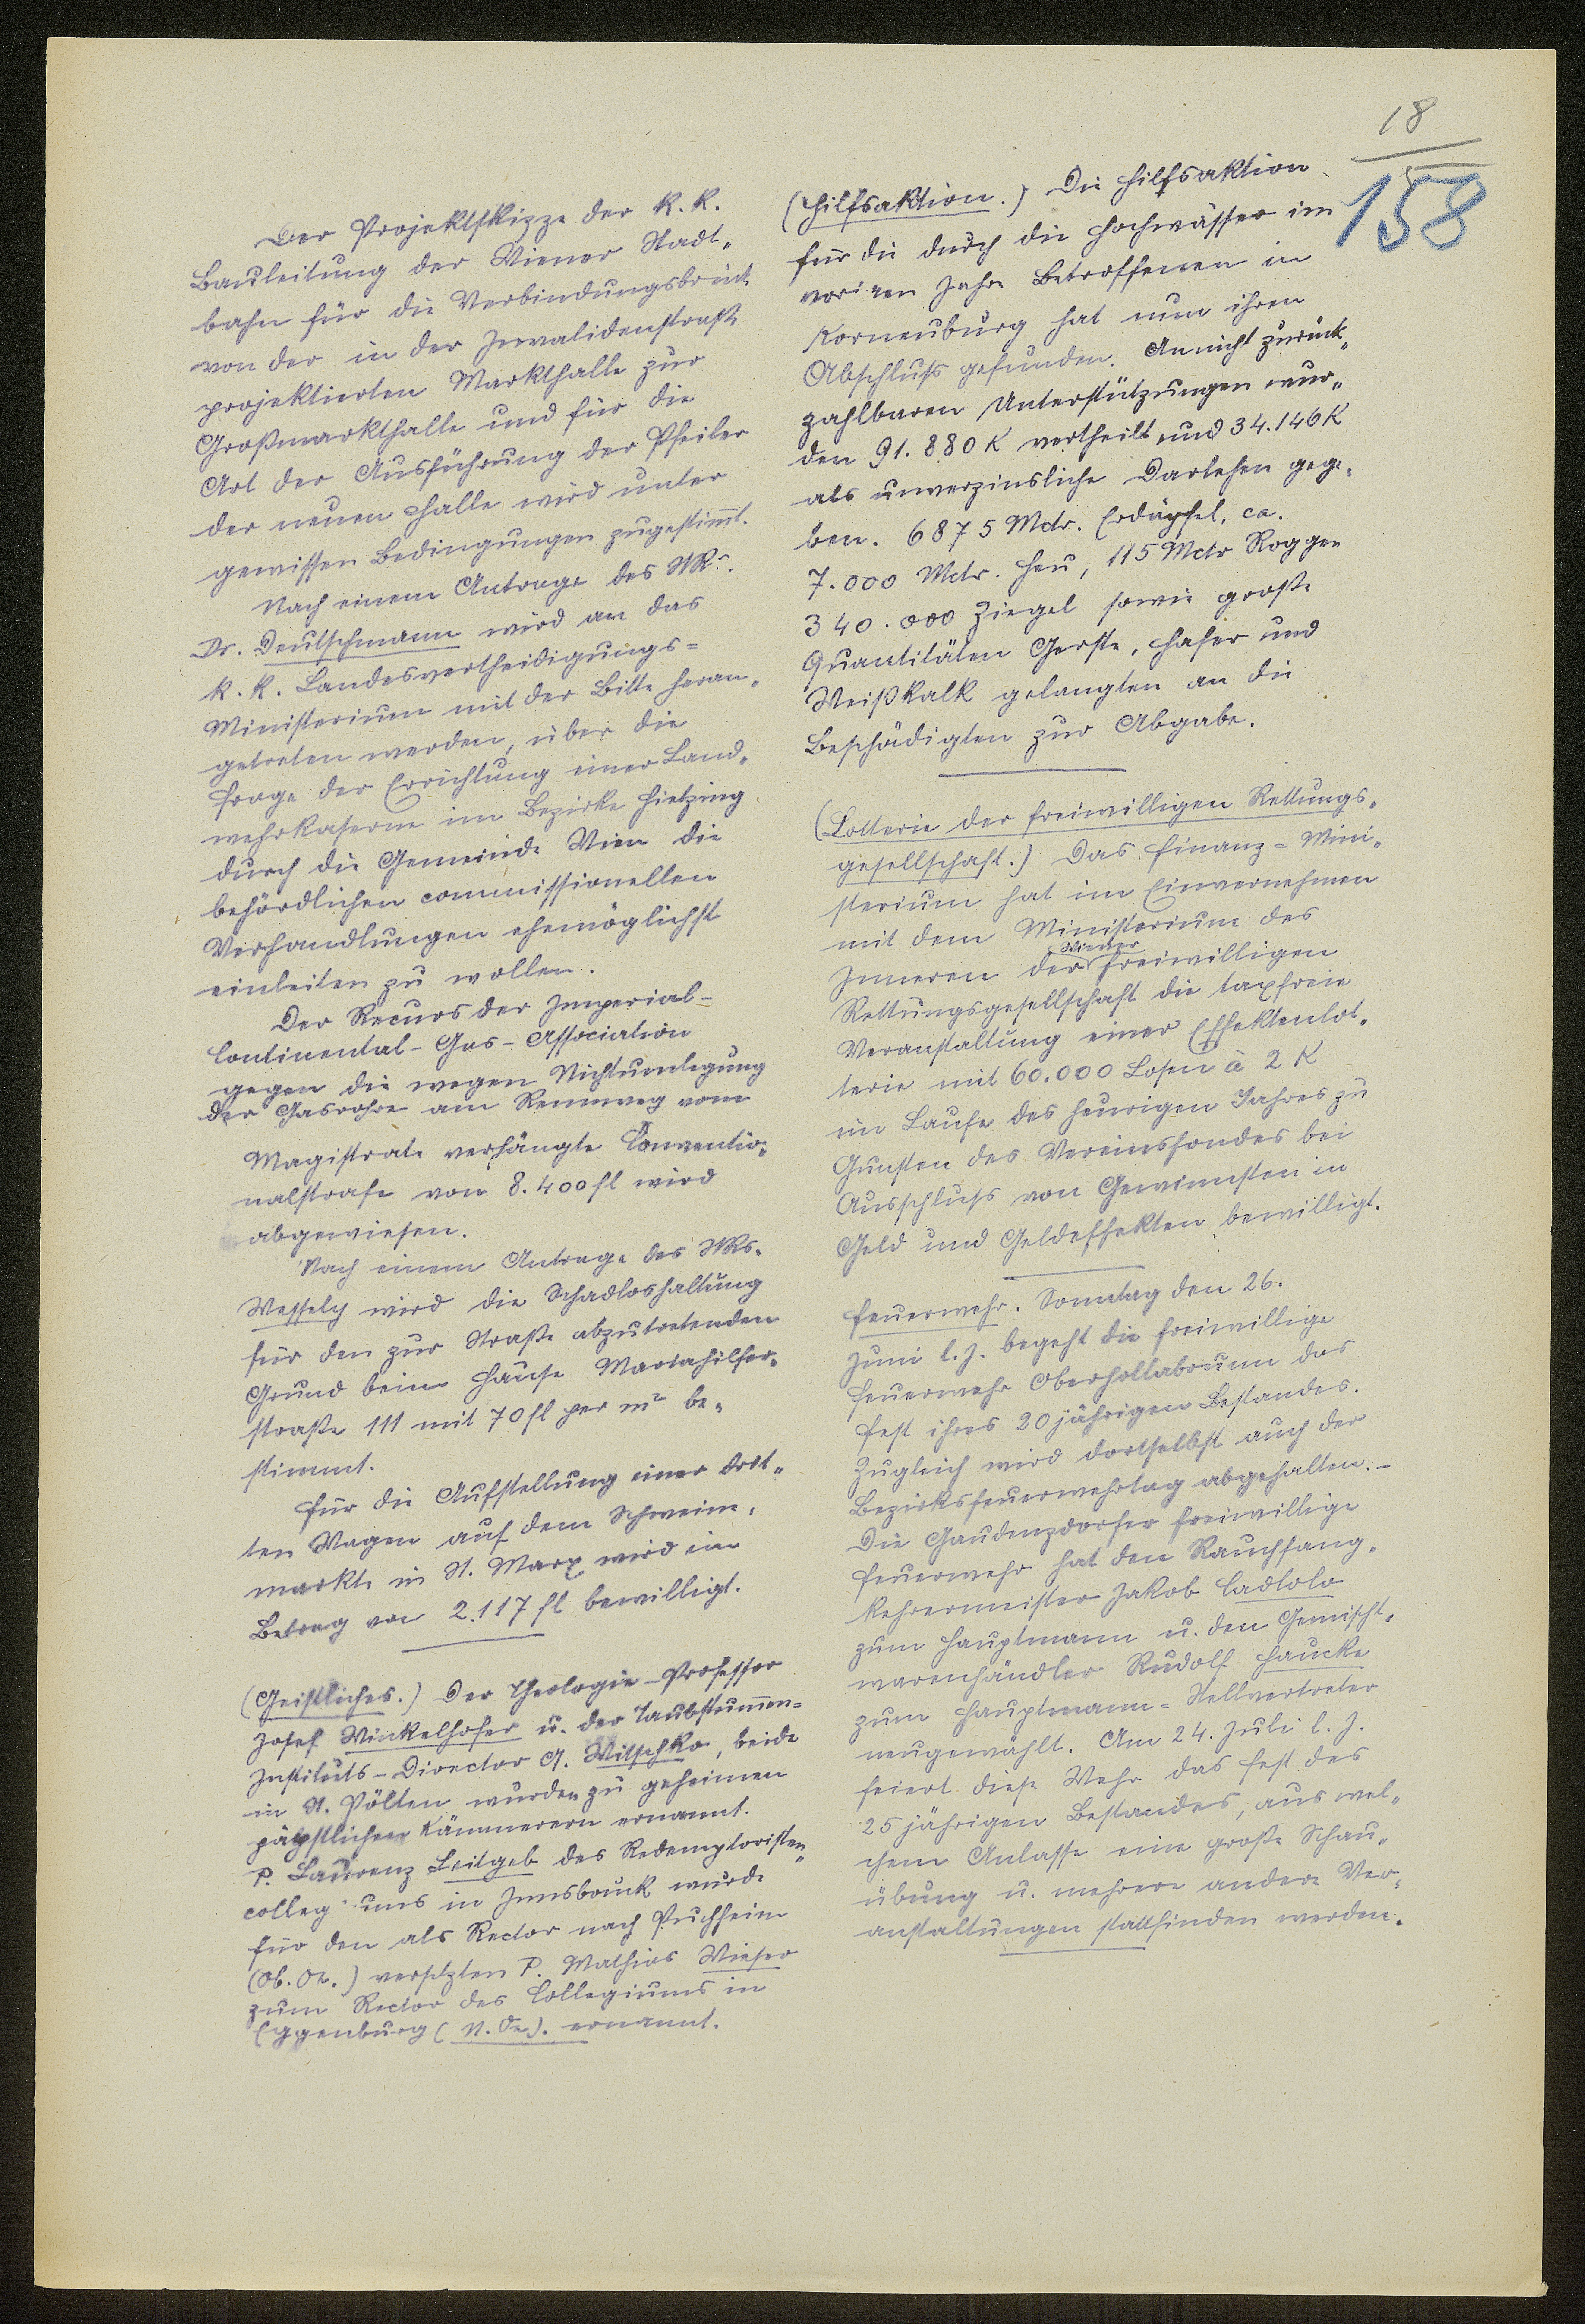 18
158
Der Projektskizze der k. k.
Bauleitung der Wiener Stadt„
bahn für die Verbindungsbrücke
von der in der Invalidenstraße
projektierten Markthalle zur
Großmarkthalle und für die
Art der Ausführung der Pfeiler
der neuen Halle wird unter
gewissen Bedingungen zugestimmt.
Nach einem Antrage des StR.
Dr. Deutschmann wird an das
k. k. Landesvertheidigungs=
Ministerium mit der Bitte heran„
getreten werden, über die
Frage der Errichtung einer Land„
wehrkaserne im Bezirke Hietzing
durch die Gemeinde Wien die
behördlichen commissionellen
Verhandlungen ehemöglichst
einleiten zu wollen.
Der Recurs der Imperial-
Continental-Gas-Association
gegen die wegen Nichtumlegung
der Gasrohre am Rennweg vom
Magistrate verhängte Conventio„
nalstrafe von 8.400 fl wird
abgewiesen.
Nach einem Antrage des StRs.
Wessely wird die Schadloshaltung
für den zur Straße abzutretenden
Grund beim Hause Mariahilfer„
straße 111 mit 70 fl per m² be„
stimmt.
Für die Aufstellung einer drit„
ten Wagen auf dem Schweine„
markte in St. Marx wird ein
Betrag von 2.117 fl bewilligt.
(Geistliches.) Der Theologie-Professor
Josef Winkelhofer u. der Taubstummen=
Instituts-Director A. Witschko, beide
in St. Pölten wurden zu geheimen
päpstlichen Kämmerern ernannt.
P. Laurenz Leitgeb des Redemptoristen„
collegiums in Innsbruck wurde
für den als Rector nach Puchheim
(Ob. Öst.) versetzten P. Mathias Wieser
zum Rector des Collegiums in
Eggenburg (N. Öst.). ernannt.
(Hilfsaktion.) Die Hilfsaktion
für die durch die Hochwässer im
vorigen Jahre Betroffenen in
Korneuburg hat nun ihren
Abschluß gefunden. An nicht zurück„
zahlbaren Unterstützungen wur„
den 91.880 K vertheilt und 34.146 K
als unverzinsliche Darlehen gege„
ben. 6875 Mctr. Erdäpfel, ca.
7.000 Mctr. Heu, 115 Mctr Roggen
340.000 Ziegel sowie große
Quantitäten Gerste, Hafer und
Weißkalk gelangten an die
Beschädigten zur Abgabe.
(Lotterie der freiwilligen Rettungs„
gesellschaft.) Das Finanz=Mini„
sterium hat im Einvernehmen
mit dem Ministerium des
Wiener
Inneren der freiwilligen
Rettungsgesellschaft die taxfreie
Veranstaltung einer Effektenlot„
terie mit 60.000 Losen à 2 K
im Laufe des heurigen Jahres zu
Gunsten des Vereinsfondes bei
Ausschluß von Gewinnsten in
Geld und Geldeffekten bewilligt.
Feuerwehr. Sonntag den 26.
Juni l. J. begeht die freiwillige
Feuerwehr Oberhollabrunn das
Fest ihres 20jährigen Bestandes.
Zugleich wird dortselbst auch der
Bezirksfeuerwehrtag abgehalten.-
Die Gaudenzdorfer freiwillige
Feuerwehr hat den Rauchfang„
kehrermeister Jakob Cadlolo
zum Hauptmann u. den Gemischt„
warenhändler Rudolf Haucke
zum Hauptmann=Stellvertreter
neugewählt. Am 24. Juli l. J.
feiert diese Wehr das Fest des
25jährigen Bestandes, aus wel„
chem Anlasse eine große Schau„
übung u. mehrere andere Ver„
anstaltungen stattfinden werden.